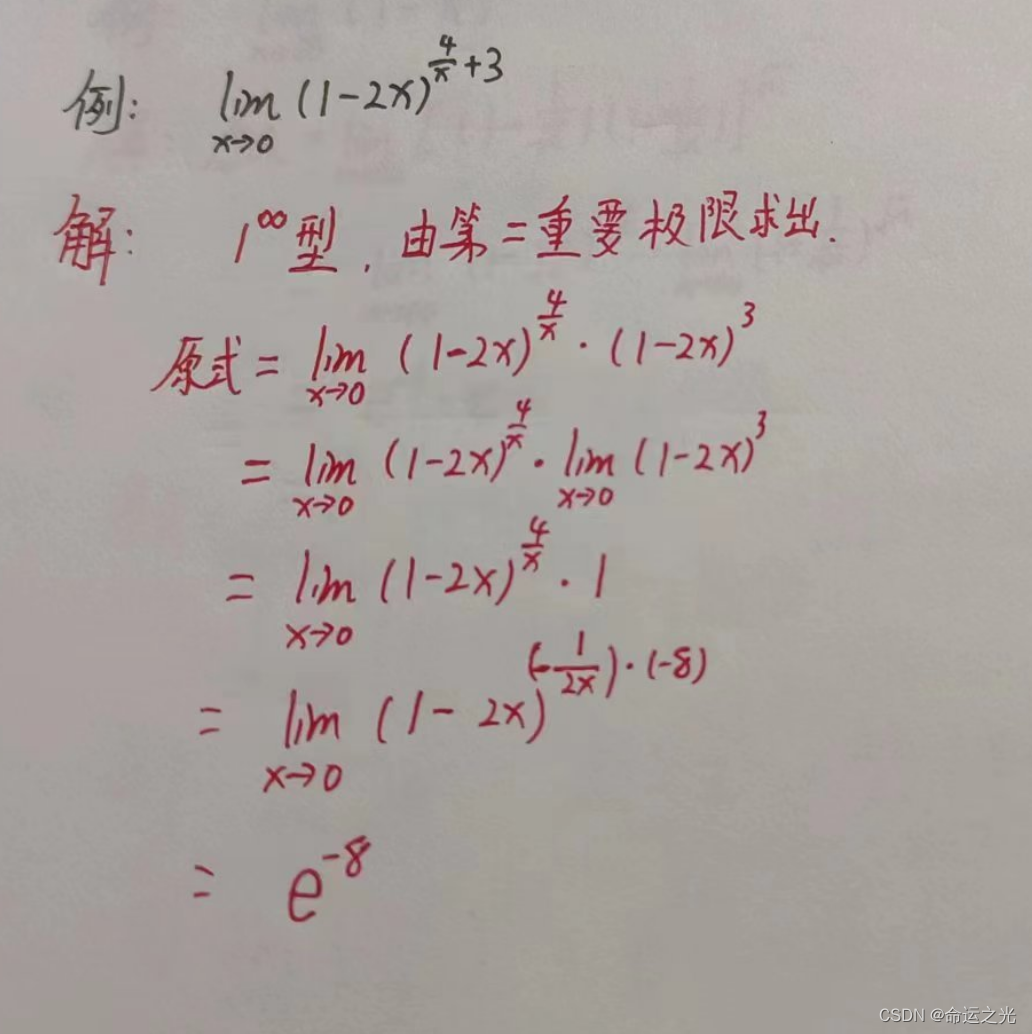 例: lim_{x→0} (1-2x)^{\frac{4}{x}+3}
解: 1^∞型, 由第二重要极限求出.
原式 = lim_{x→0} (1-2x)^{\frac{4}{x}} · (1-2x)^3
= lim_{x→0} (1-2x)^{\frac{4}{x}} · lim_{x→0} (1-2x)^3
= lim_{x→0} (1-2x)^{\frac{4}{x}} · 1
= lim_{x→0} (1-2x)^{(-\frac{1}{2x})·(-8)}
= e^{-8}
CSDN @命运之光